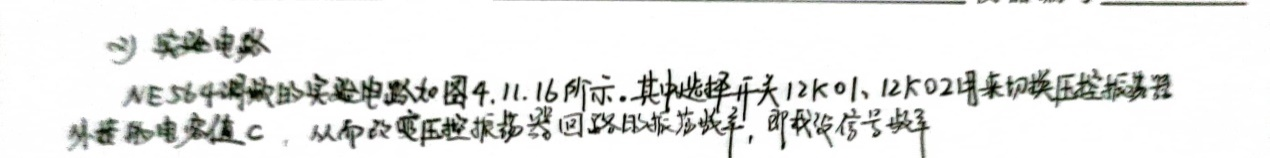 2) 实验电路
NE564调频的实验电路如图4.11.16所示。其中选择开关12K01、12K02用来切换压控振荡器
外接的电容值C，从而改变压控振荡器回路的振荡频率，即载波信号频率